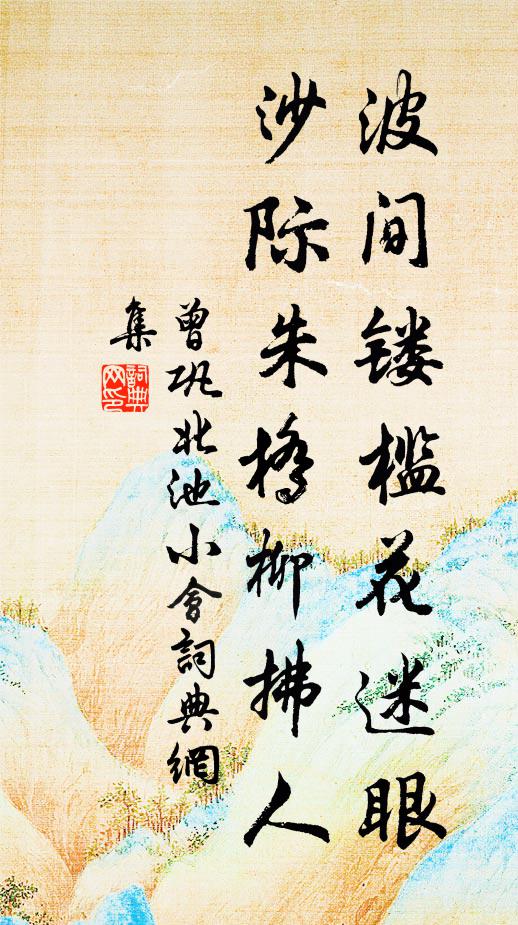 波间镂槛花迷眼
沙际朱桥柳拂人
曾巩北池小會詞典網
集
詞典网印